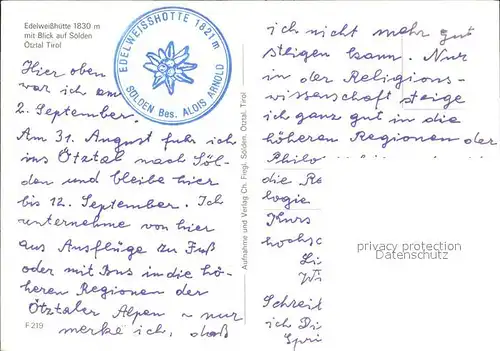 Edelweißhütte 1830 m
mit Blick auf Sölden
Ötztal Tirol
EDELWEISSHÜTTE 1821 m
SÖLDEN Bes. ALOIS ARNOLD
Hier oben
war ich am
2. September.
Am 31. August fuhr ich
ins Ötztal nach Söl-
den und bleibe hier
bis 12. September. Ich
unternehme von hier
aus Ausflüge zu Fuß
oder mit Bus in die hö-
heren Regionen der
Ötztaler Alpen – nur
merke ich, daß
F 219
Aufnahme und Verlag Ch. Fregl. Sölden, Ötztal, Tirol
ich nicht mehr gut
steigen kann. Nur
in der Religions-
wissenschaft steige
ich ganz gut in die
höheren Regionen der
Philo
die Re
logie
Kurs
hochsc
Schreib
ich Di
Spri
privacy protection
Datenschutz